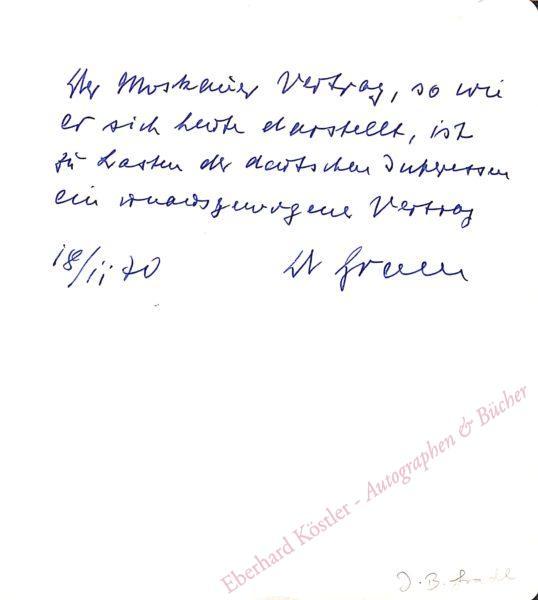 Der Moskauer Vertrag, so wie
er sich heute darstellt, ist
zu Lasten der deutschen Interessen
ein unausgewogener Vertrag
18/11 70
Eberhard Köstler - Autographen & Bücher
J. B.